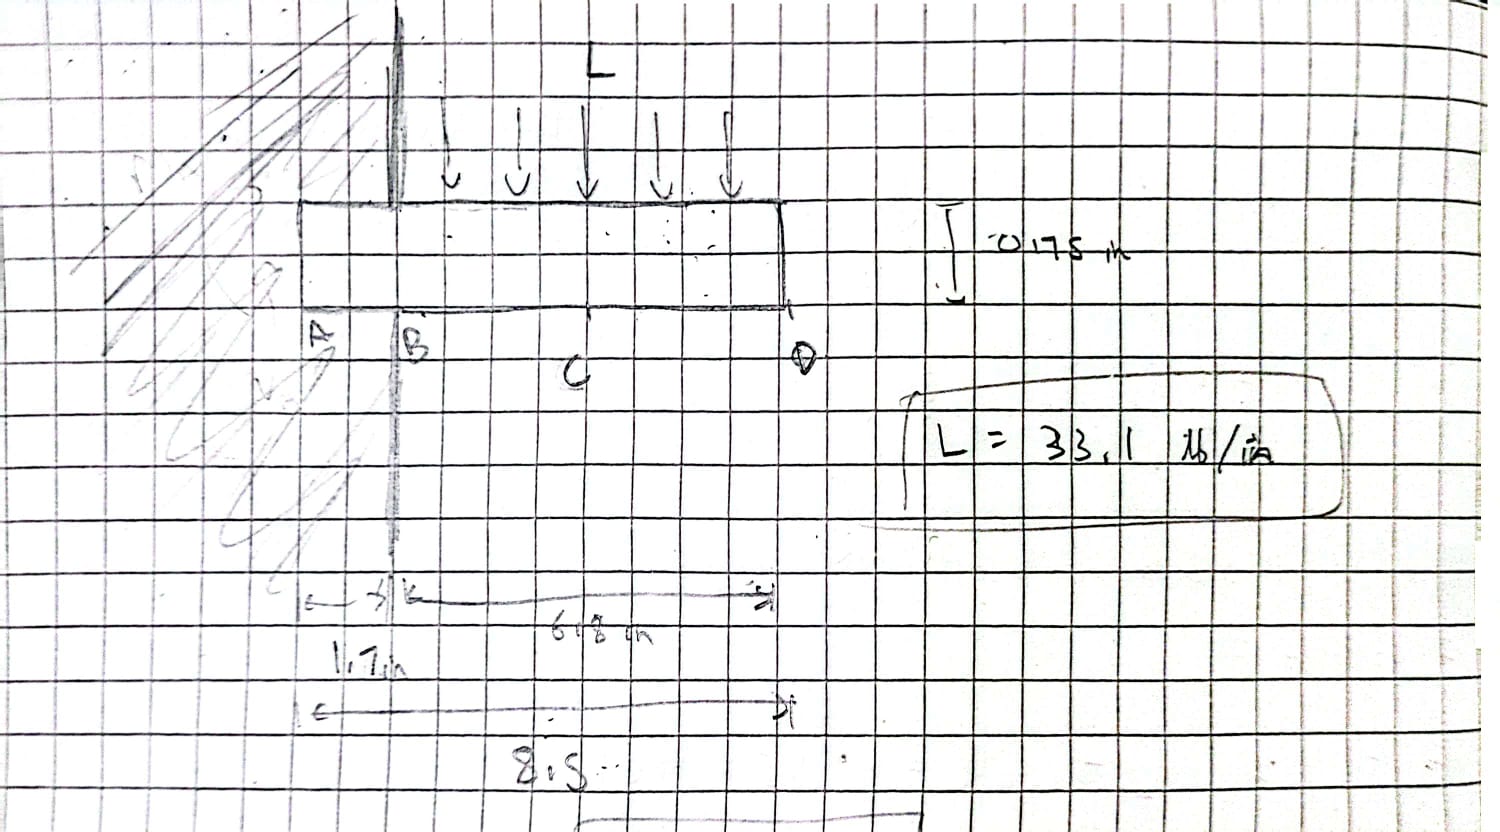 L
0.175 in
A
B
C
D
L = 33.1 lb/in
6.8 in
1.7in
8.5